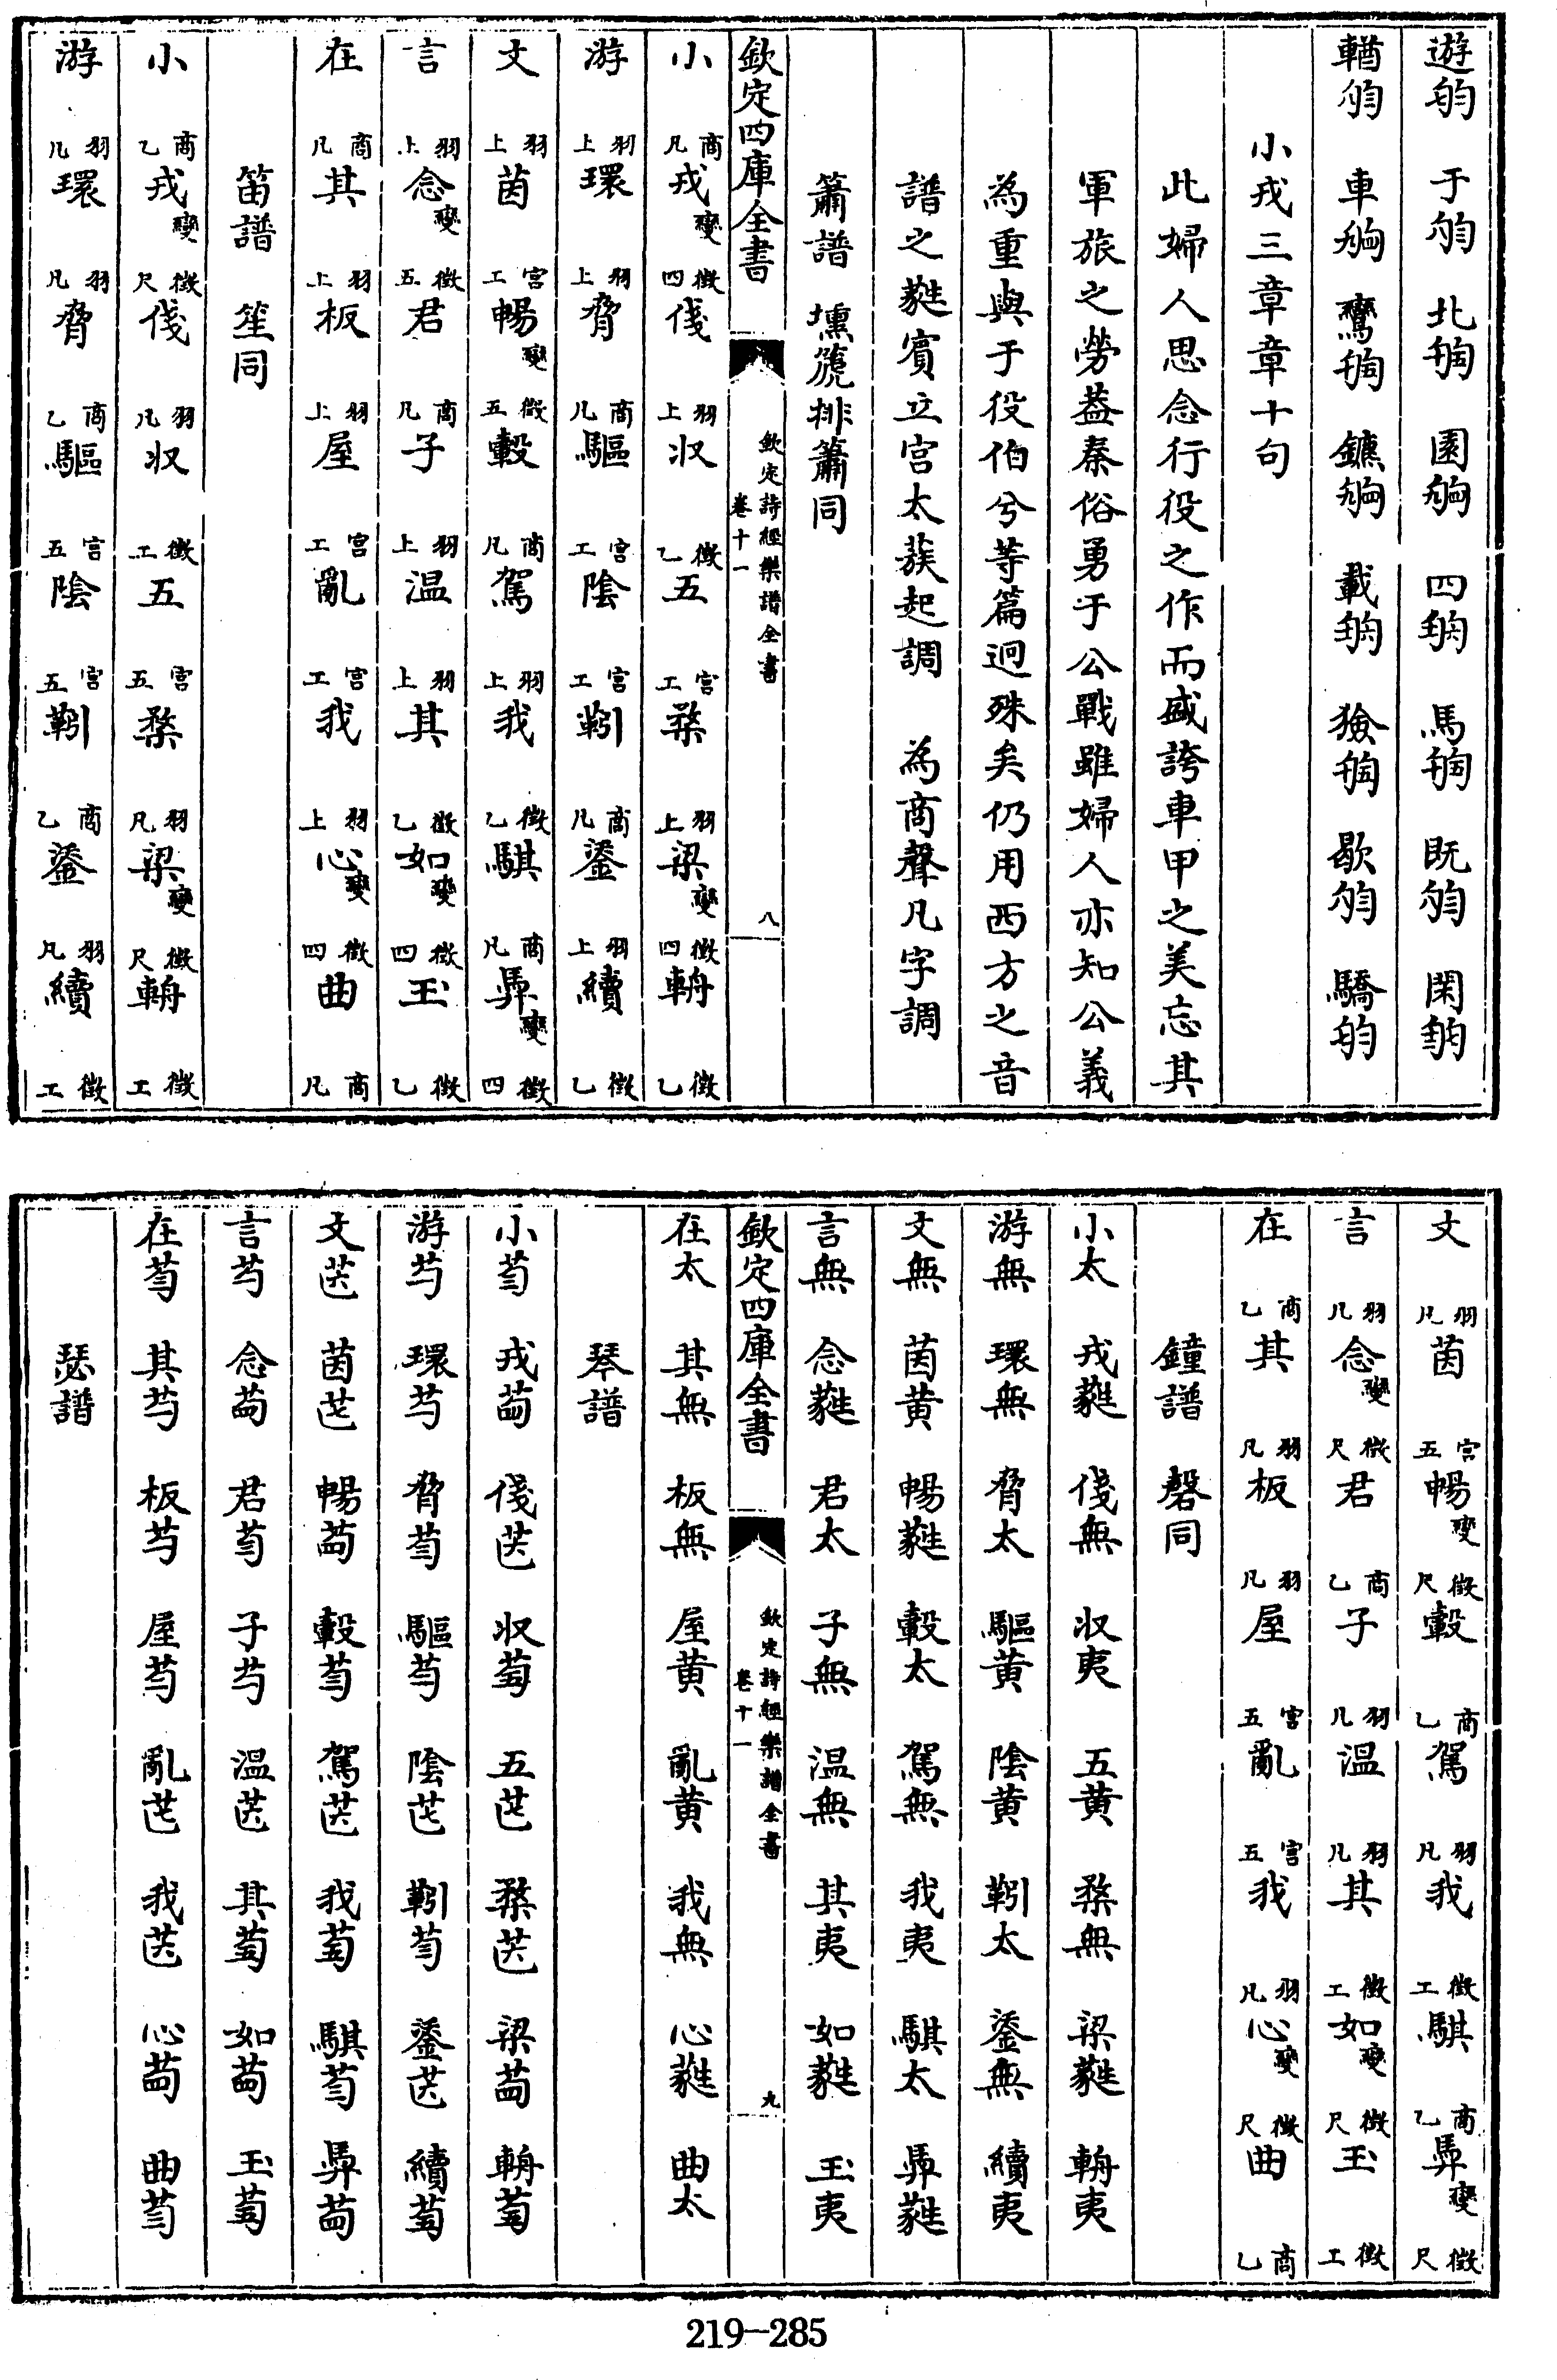 遊 于 北 園 四 馬 既 閑
輶 車 鸞 鑣 載 獫 歇 驕
小戎三章章十句
此婦人思念行役之作而盛誇車甲之美忘其
軍旅之勞葢秦俗勇于公戰雖婦人亦知公義
為重與于役伯兮等篇迥殊矣仍用西方之音
譜之蕤賓立宫太蔟起調 為商聲凡字調
簫譜 壎篪排簫同
欽定四庫全書 欽定詩經樂譜全書 卷十一 八
小商凡 戎變徵四 俴羽上 収徵乙 五宫工 楘羽上 梁變徵四 輈徵乙
游羽上 環羽上 脅商凡 驅宫工 陰宫工 靷商凡 鋈羽上 續徵乙
文羽上 茵宫工 暢變徵五 轂商凡 駕羽上 我徵乙 騏商凡 馵變徵四
言羽上 念變徵五 君商凡 子羽上 温羽上 其徵乙 如變徵四 玉徵乙
在商凡 其羽上 板羽上 屋宫工 亂宫工 我羽上 心變徵四 曲商凡
笛譜 笙同
小商乙 戎變徵尺 俴羽凡 収徵工 五宫五 楘羽凡 梁變徵尺 輈徵工
游羽凡 環羽凡 脅商乙 驅宫五 陰宫五 靷商乙 鋈羽凡 續徵工
文羽凡 茵宫五 暢變徵尺 轂商乙 駕羽凡 我徵工 騏商乙 馵變徵尺
言羽凡 念變徵尺 君商乙 子羽凡 温羽凡 其徵工 如變徵尺 玉徵工
在商乙 其羽凡 板羽凡 屋宫五 亂宫五 我羽凡 心變徵尺 曲商乙
鐘譜 磬同
小太 戎蕤 俴無 収夷 五黄 楘無 梁蕤 輈夷
游無 環無 脅太 驅黄 陰黄 靷太 鋈無 續夷
文無 茵黄 暢蕤 轂太 駕無 我夷 騏太 馵蕤
言無 念蕤 君太 子無 温無 其夷 如蕤 玉夷
欽定四庫全書 欽定詩經樂譜全書 卷十一 九
在太 其無 板無 屋黄 亂黄 我無 心蕤 曲太
琴譜
小 戎 俴 収 五 楘 梁 輈
游 環 脅 驅 陰 靷 鋈 續
文 茵 暢 轂 駕 我 騏 馵
言 念 君 子 温 其 如 玉
在 其 板 屋 亂 我 心 曲
瑟譜
219—285